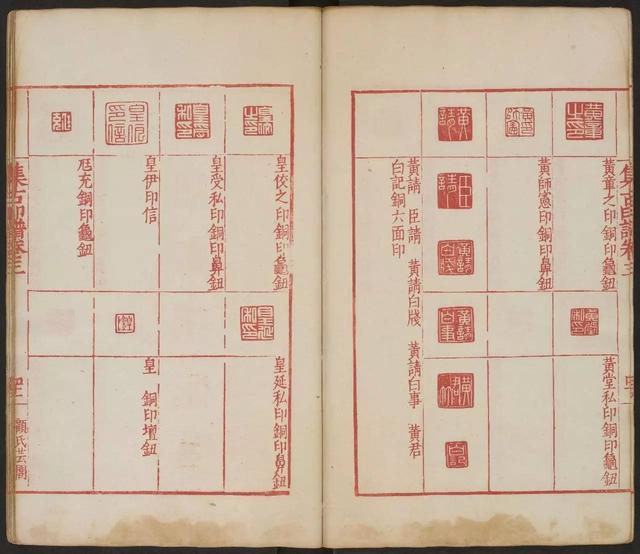 集古印譜卷三
黃章之印銅印龜鈕
黃師憲印銅印鼻鈕
黃堂私印銅印龜鈕
黃請　臣請　黃請白牋　黃請白事　黃君
白記銅六面印
皇佼之印銅印龜鈕
皇受私印銅印鼻鈕
皇伊印信
厄充銅印龜鈕
皇延私印銅印鼻鈕
皇　銅印壇鈕
集古印譜卷三
顧氏芸閣